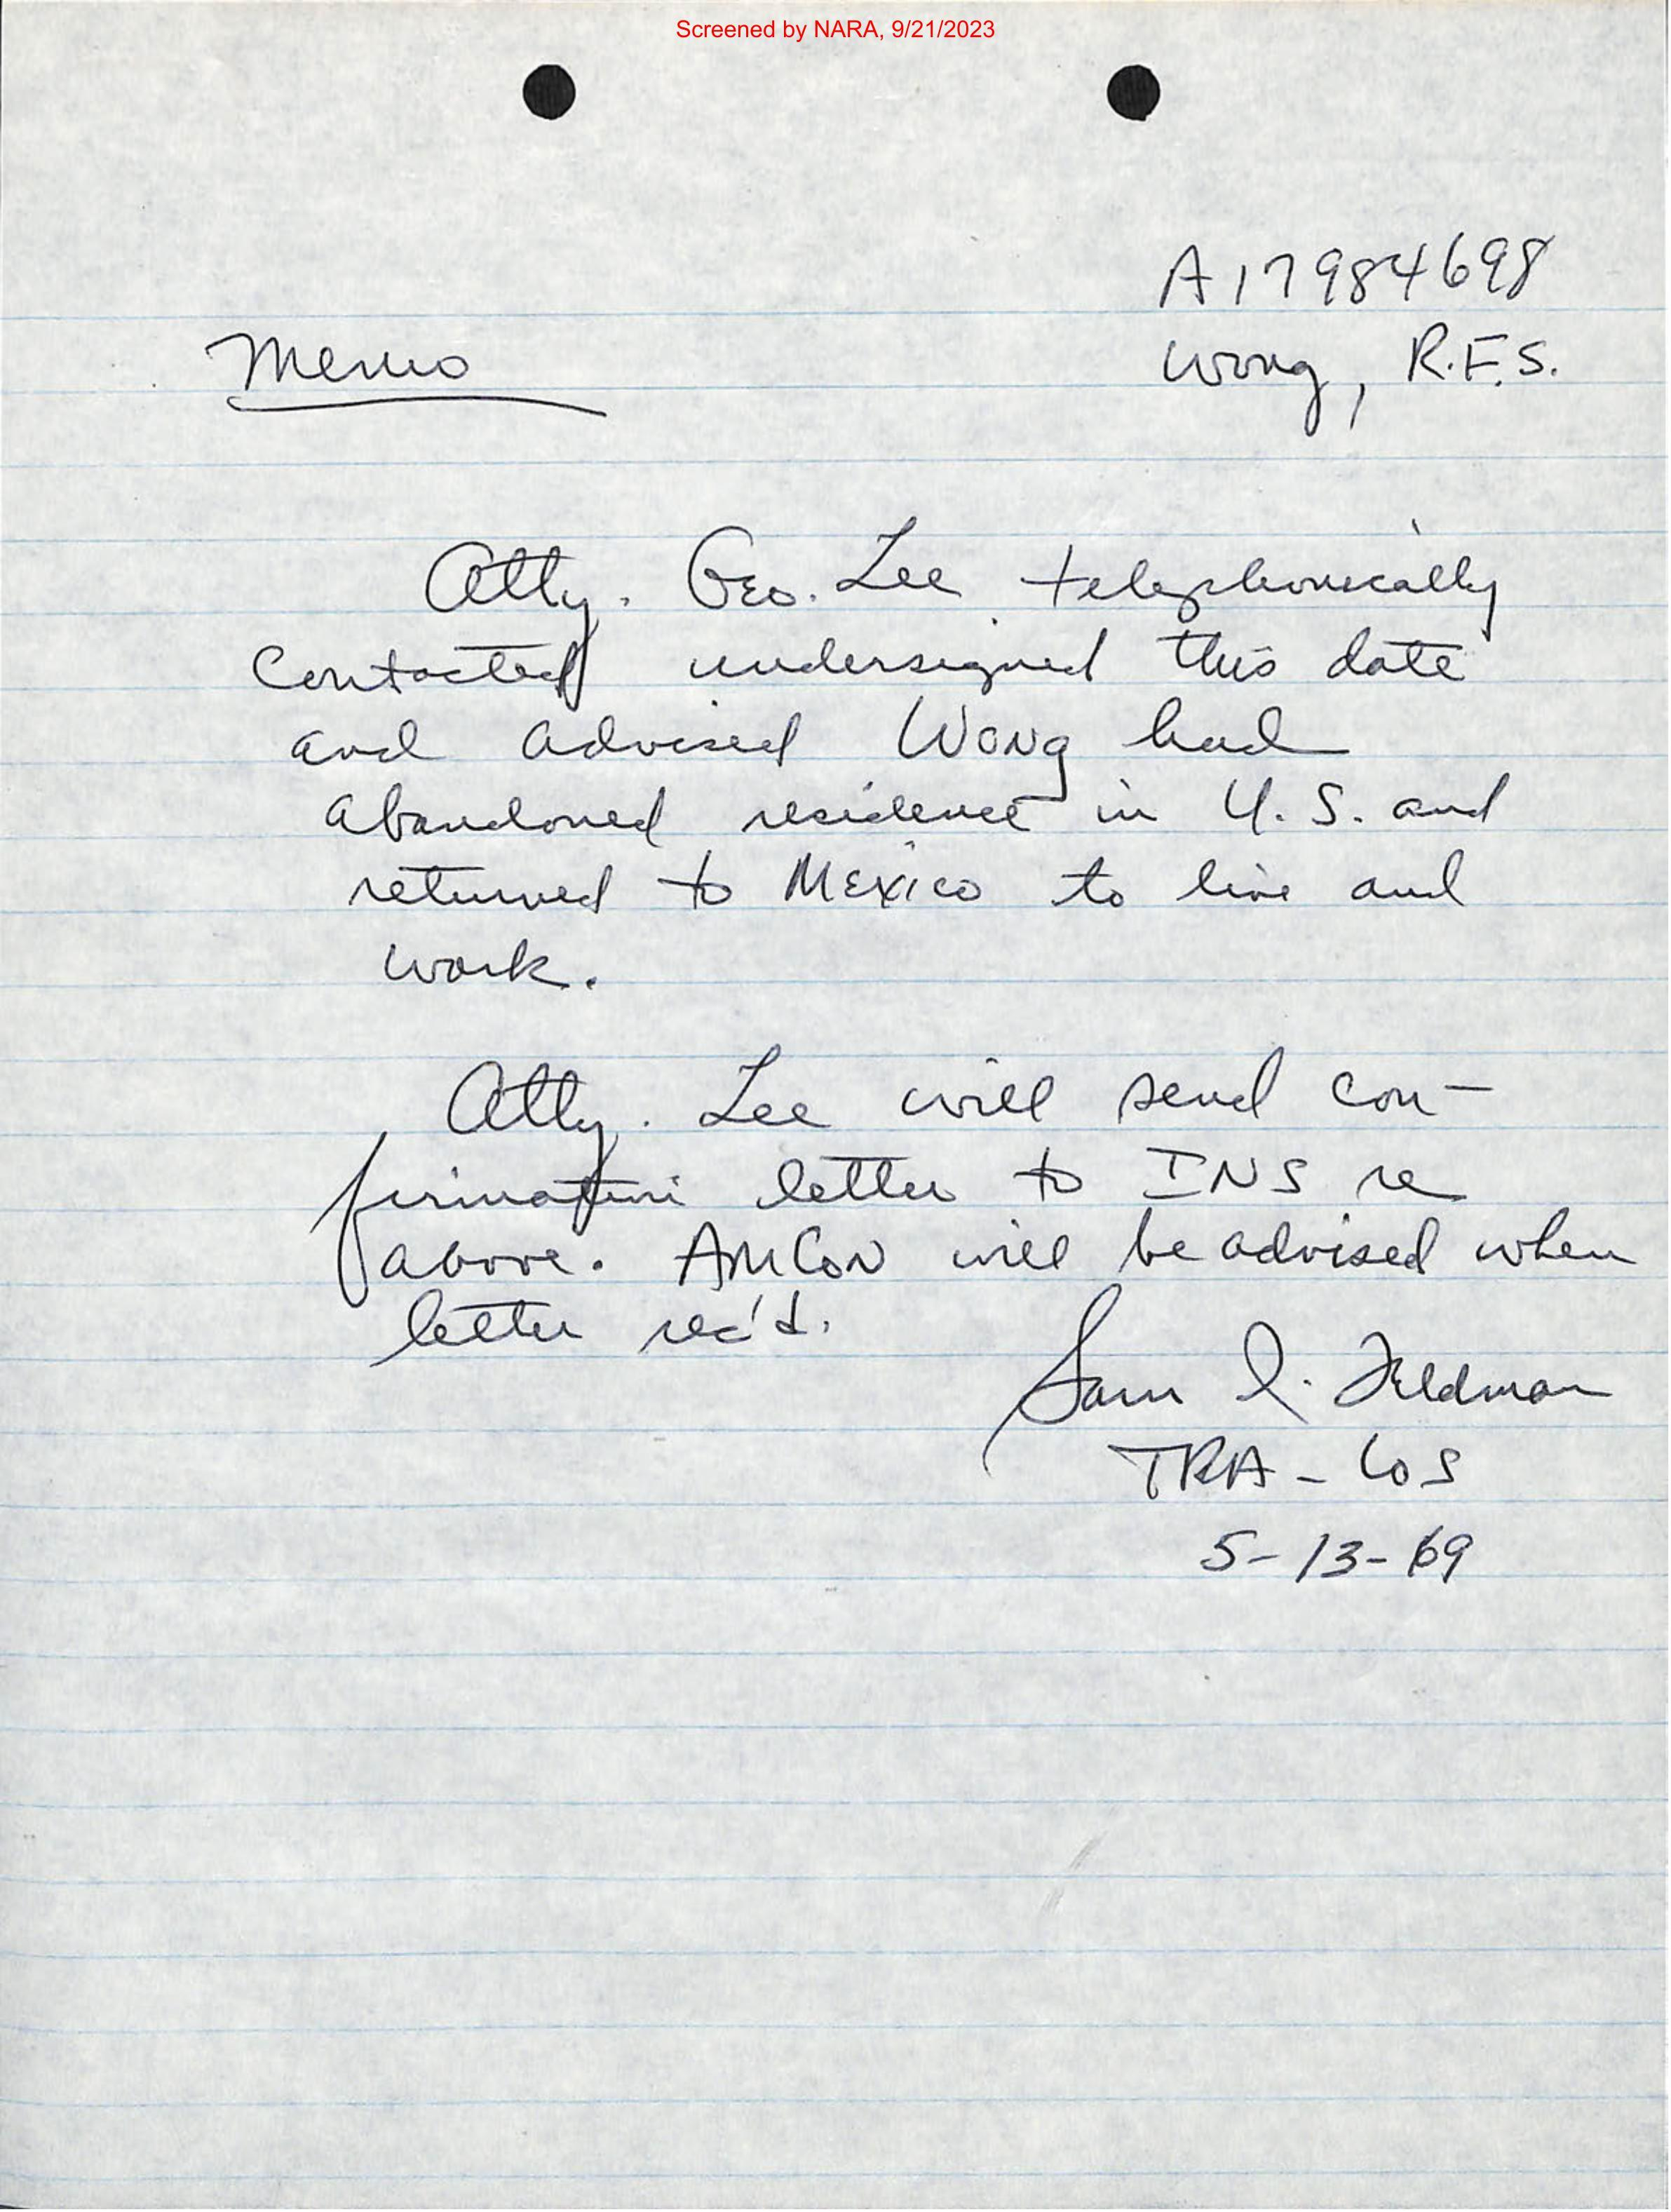 Screened by NARA, 9/21/2023
A17984698
Memo
Wong, R.F.S.
Atty. Geo. Lee telephonically
contacted undersigned this date
and advised Wong had
abandoned residence in U.S. and
returned to Mexico to live and
work.
Atty. Lee will send con-
firmation letter to INS re
above. AmCon will be advised when
letter rec'd.
Sam I. Feldman
TRA - LOS
5-13-69